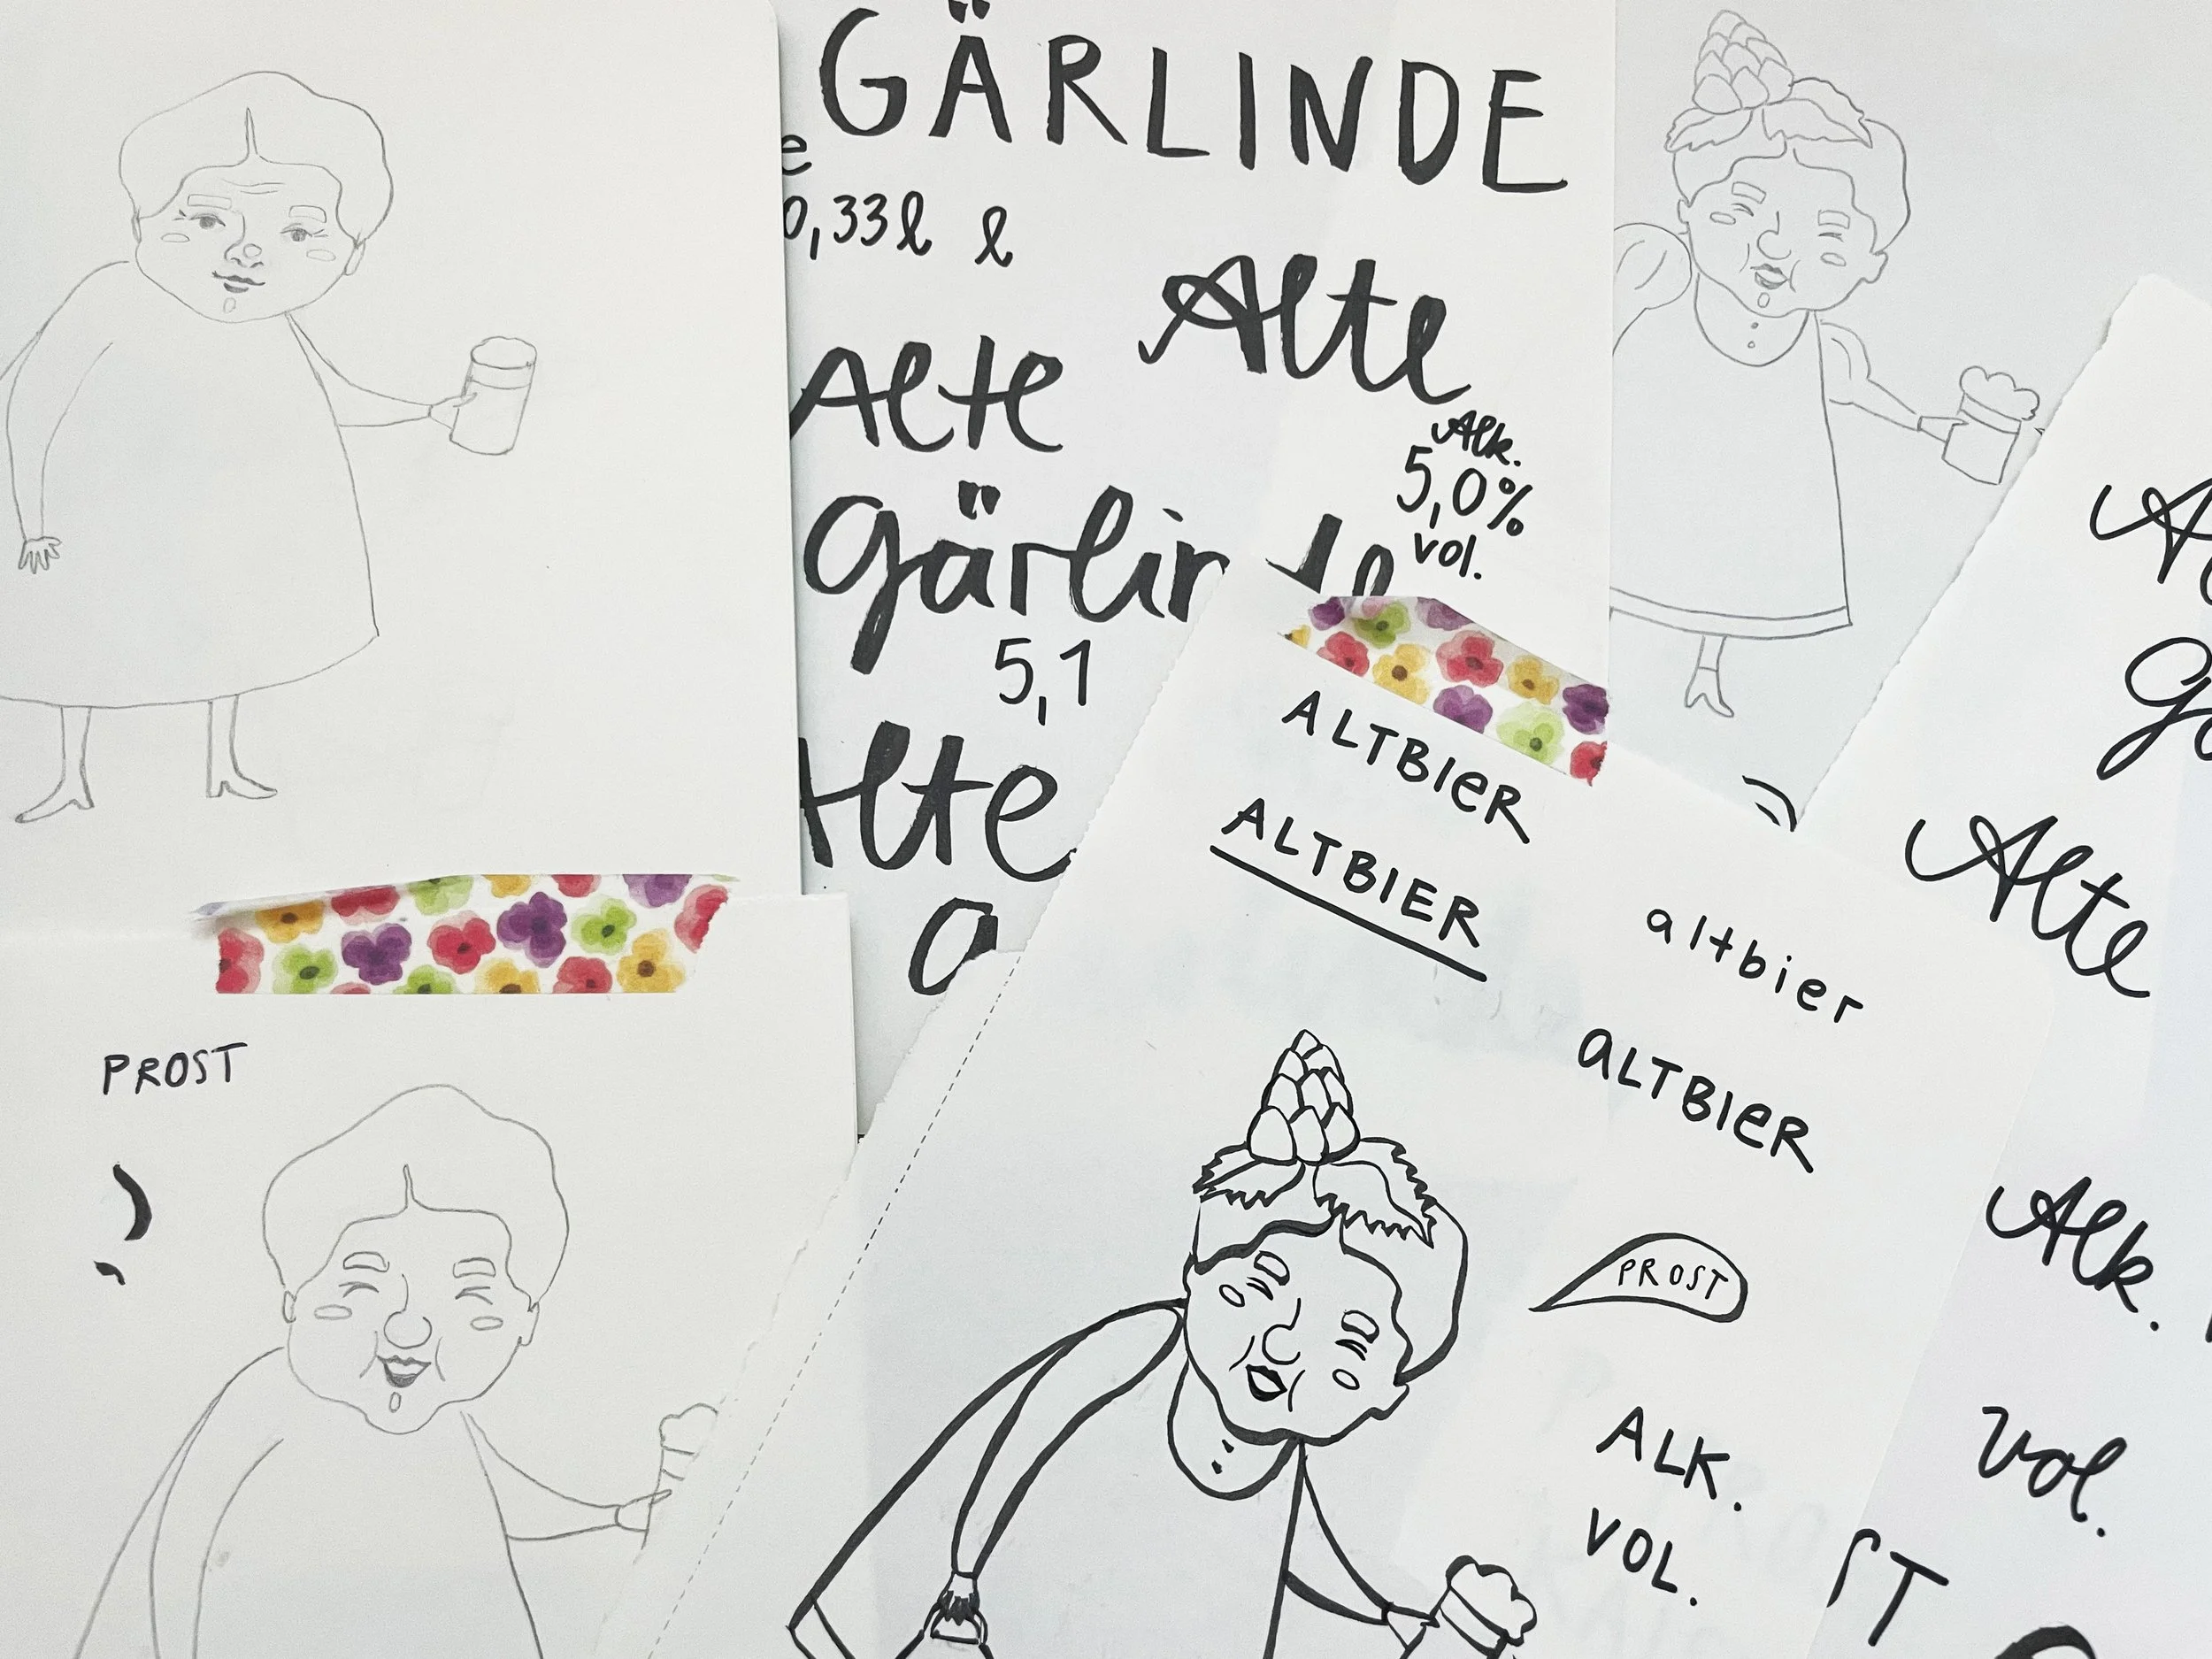 GÄRLINDE
e
0,33 l l
Alte
Alte
Alk.
5,0%
vol.
Gärlin
5,1
Alte
ALTBIER
ALTBIER
altbier
ALTBIER
PROST
ALK.
VOL.
PROST
Alte
Alk.
Vol.
ST